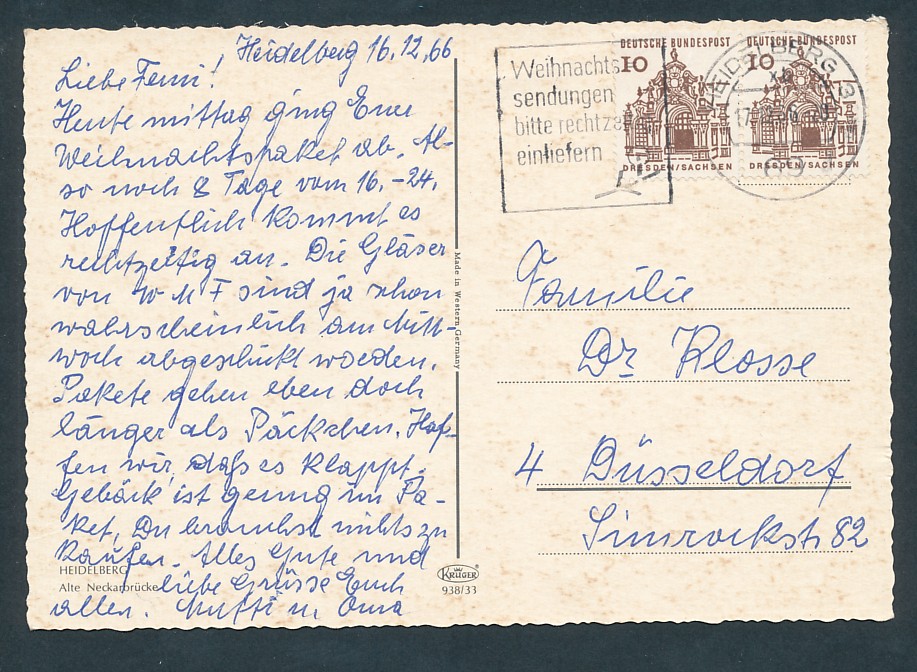 Heidelberg 16.12.66
Liebe Femi!
Heute mittag ging Euer
Weihnachtspaket ab. Al-
so noch 8 Tage vom 16.-24.
Hoffentlich kommt es
rechtzeitig an. Die Gläser
von W M F sind ja schon
wahrscheinlich am Mitt-
woch abgeschickt worden.
Pakete gehen eben doch
länger als Päckchen. Hof-
fen wir, daß es klappt.
Gebäck ist genug im Pa-
ket, Du brauchst nichts zu
kaufen. Alles Gute und
liebe Grüsse Euch
allen. Mutti u. Oma
HEIDELBERG
Alte Neckarbrücke
Made in Western Germany
KRÜGER
938/33
Weihnachts
sendungen
bitte rechtze
einliefern
DEUTSCHE BUNDESPOST
10
DRESDEN/SACHSEN
DEUTSCHE BUNDESPOST
10
DRESDEN/SACHSEN
HEIDELBERG
Familie
Dr Klosse
4 Düsseldorf
Simrockstr 82